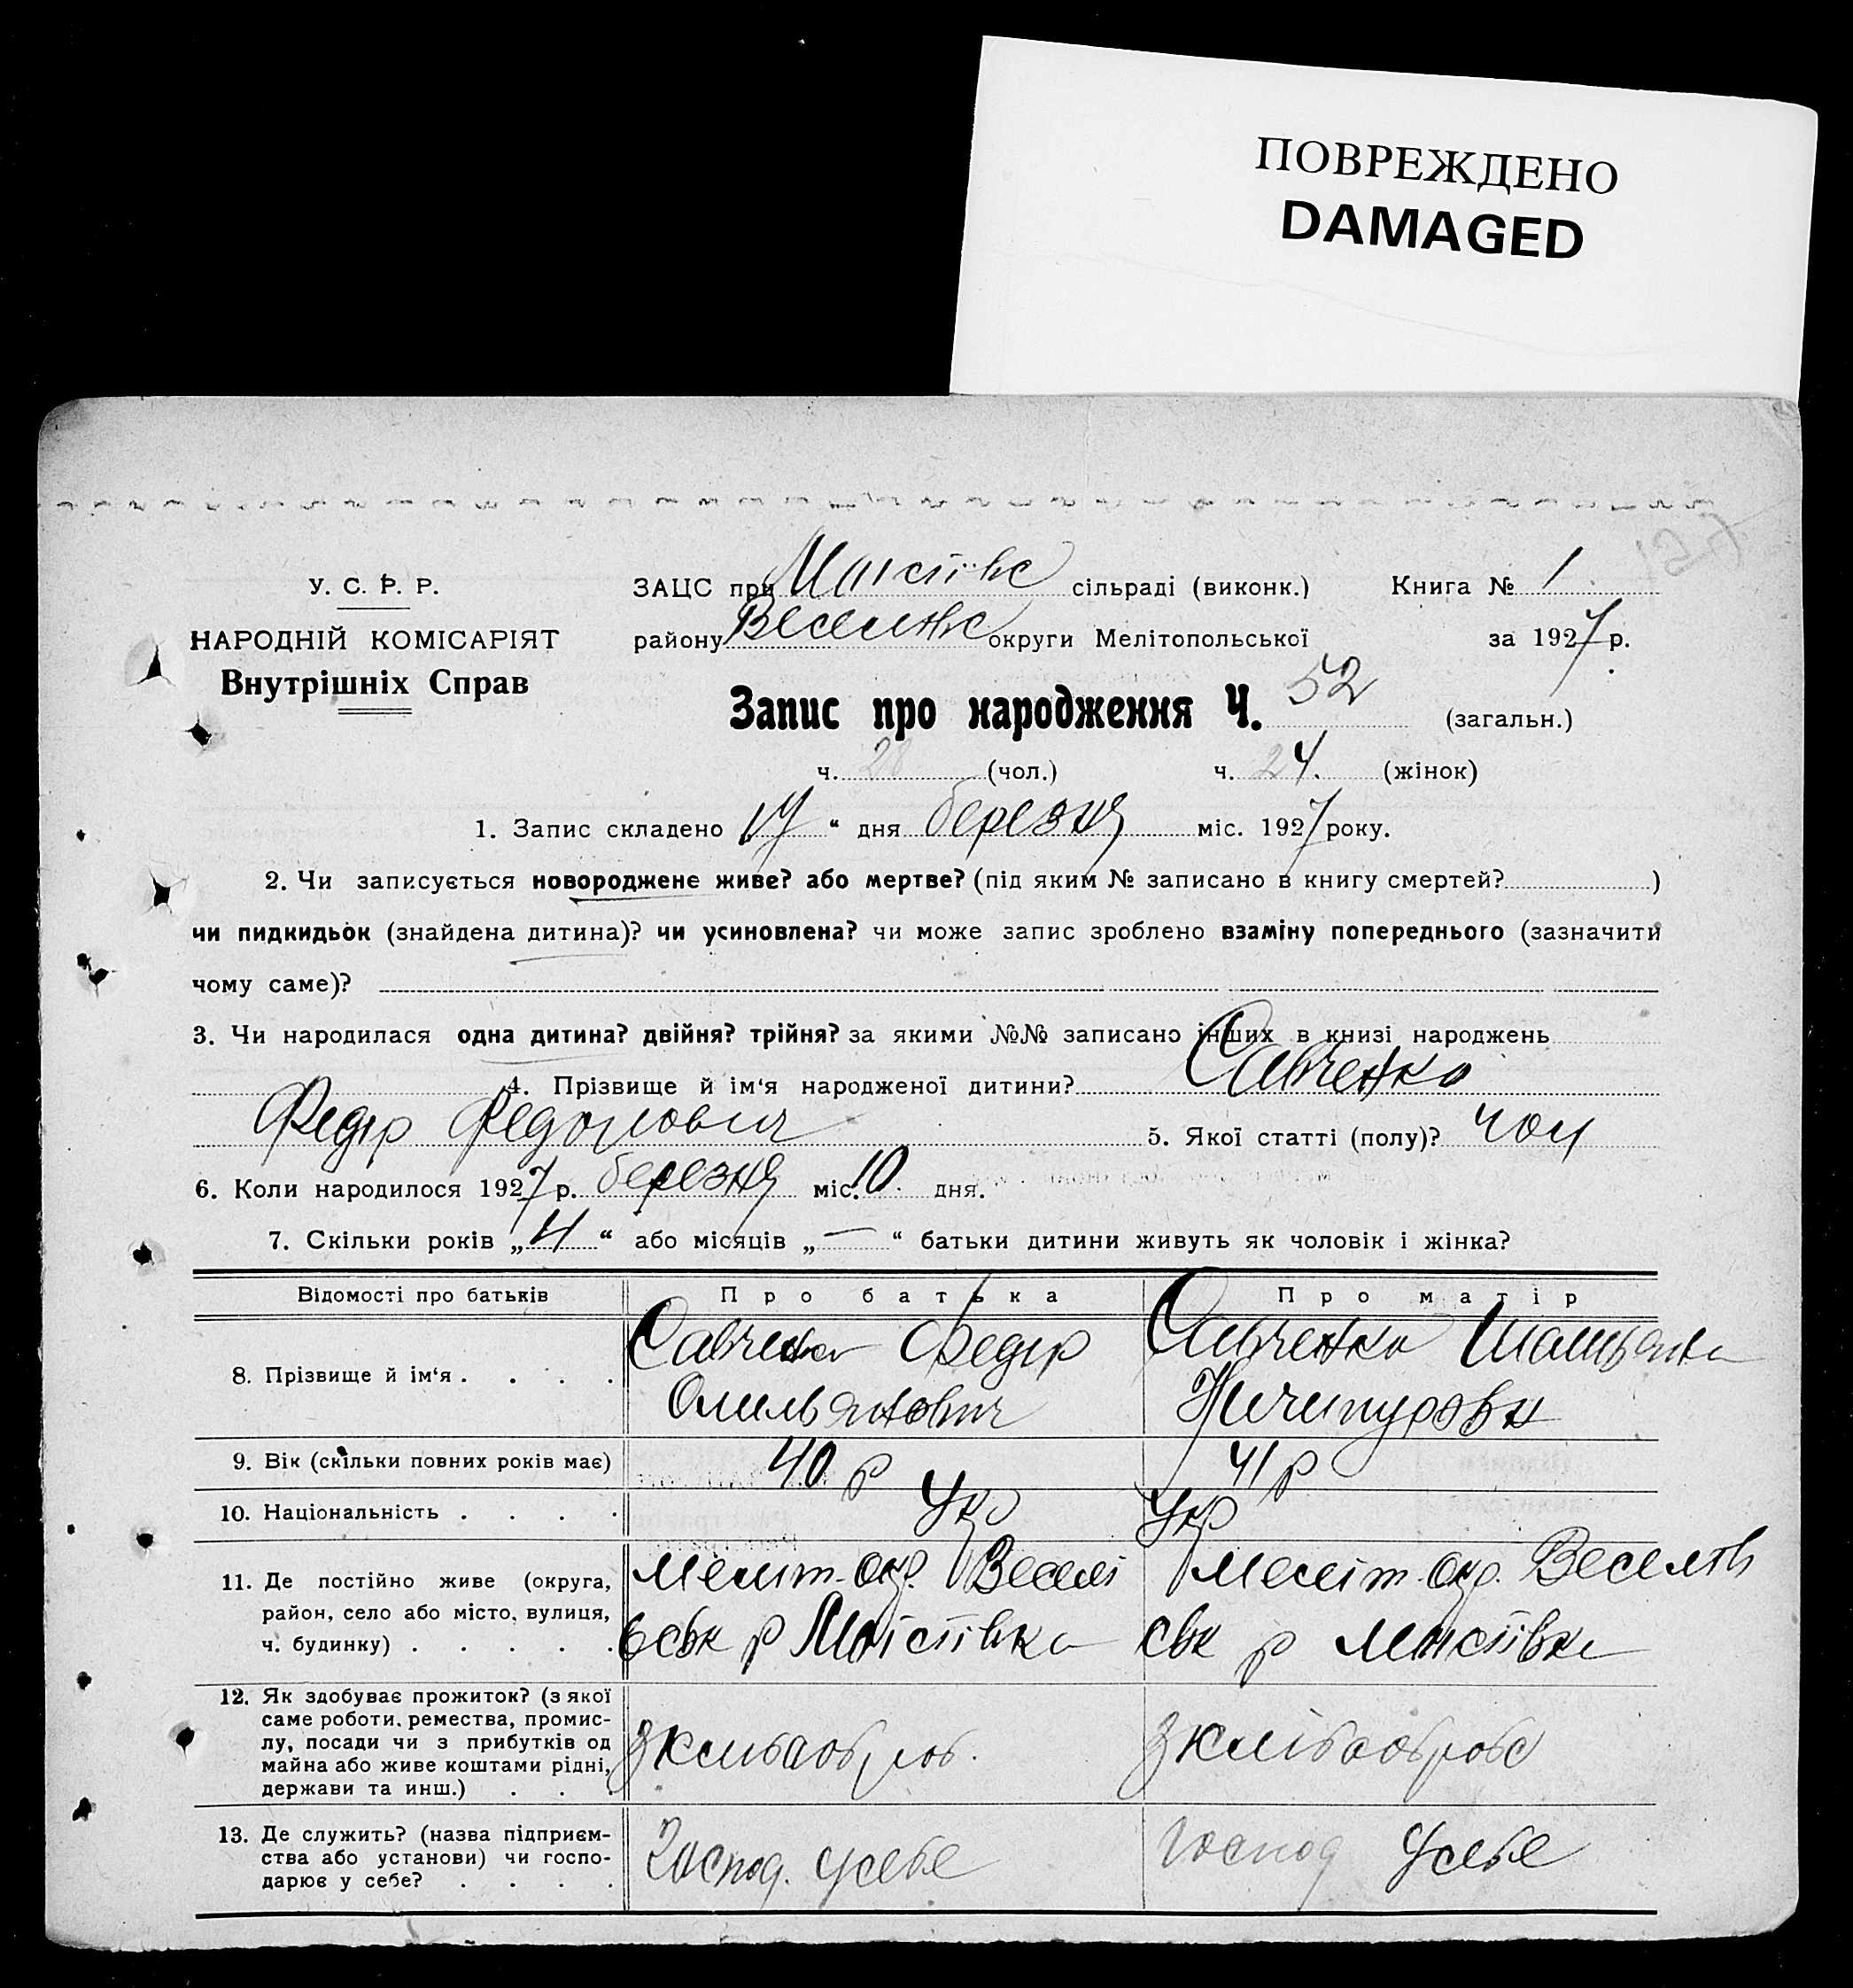 ПОВРЕЖДЕНО
DAMAGED
У. С. Р. Р.
НАРОДНІЙ КОМІСАРІЯТ
Внутрішніх Справ
ЗАЦС при Моісіївс сільраді (виконк.) Книга № 1
району Веселівс округи Мелітопольської за 1927 р.
Запис про народження Ч. 52 (загальн.)
ч. 28 (чол.) ч. 24. (жінок)
1. Запис складено „17“ дня березня міс. 1927 року.
2. Чи записується новороджене живе? або мертве? (під яким № записано в книгу смертей? )
чи пидкидьок (знайдена дитина)? чи усиновлена? чи може запис зроблено взаміну попереднього (зазначити
чому саме)?
3. Чи народилася одна дитина? двійня? трійня? за якими №№ записано інших в книзі народжень
4. Прізвище й ім‘я народженої дитини? Савченко
Федір Федорович 5. Якої статті (полу)? чол
6. Коли народилося 1927 р. березня міс. 10 дня.
7. Скільки років „4“ або місяців „—“ батьки дитини живуть як чоловік і жінка?
Відомості про батьків Про батька Про матір
8. Прізвище й ім‘я . . . . Савченко Федір Омельянович Савченко Ничипуровн
9. Вік (скільки повних років має) 40 р 41 р
10. Національність . . . . Укр Укр
11. Де постійно живе (округа,
район, село або місто, вулиця,
ч. будинку) . . . . .
Меліт. окр. Веселі
вськ р Моісіївка
Меліт. окр. Веселів
ськ р Моісіївка
12. Як здобуває прожиток? (з якої
саме роботи, ремества, промис-
лу, посади чи з прибутків од
майна або живе коштами рідні,
держави та инш.) . . .
З хлібороб.
З
13. Де служить? (назва підприєм-
ства або установи) чи госпо-
дарює у себе? . . . .
Господ. у себе
Господ у себе